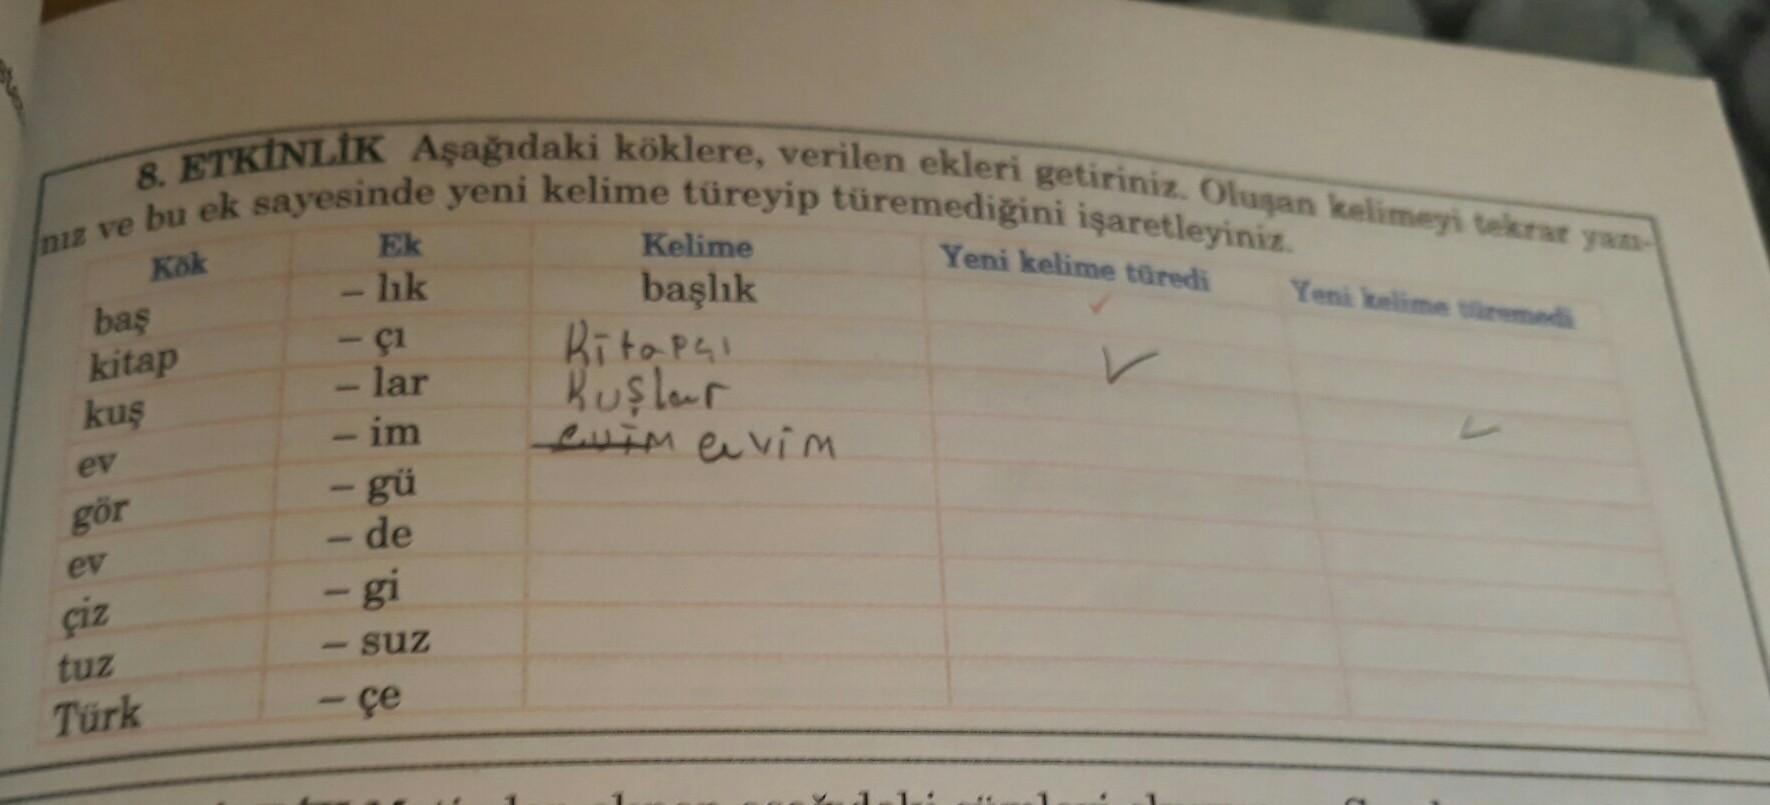 8. ETKİNLİK Aşağıdaki köklere, verilen ekleri getiriniz. Oluşan kelimeyi tekrar yazı-
nız ve bu ek sayesinde yeni kelime türeyip türemediğini işaretleyiniz.
Kök Ek Kelime Yeni kelime türedi Yeni kelime türemedi
baş – lık başlık ✓
kitap – çı Kitapçı ✓
kuş – lar Kuşlar ✓
ev – im evim evim
gör – gü
ev – de
çiz – gi
tuz – suz
Türk – çe